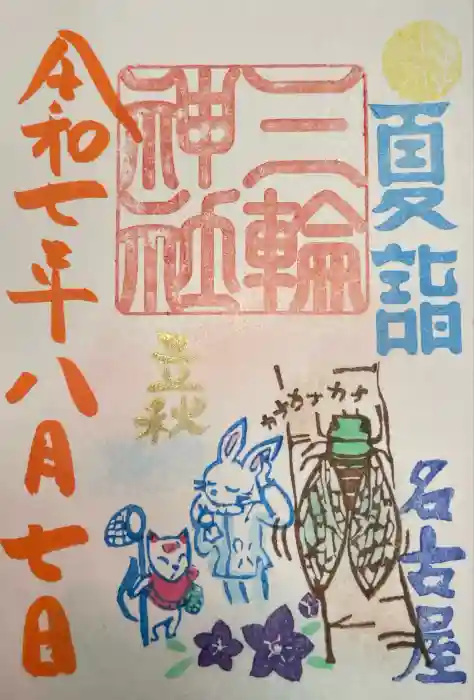 夏詣
名古屋
三輪
神社
立秋
カナカナカナ
令和七年八月七日